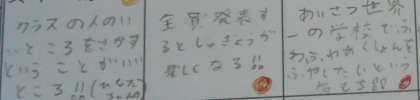 クラスの人のい
いところをさがす
ということがいい
ところ!!
全員発表す
るとしゅぎょうが
楽しくなる!!
あいさつ世界
一の学校で、ふ
わふわめっしょんを
ふやしたいという